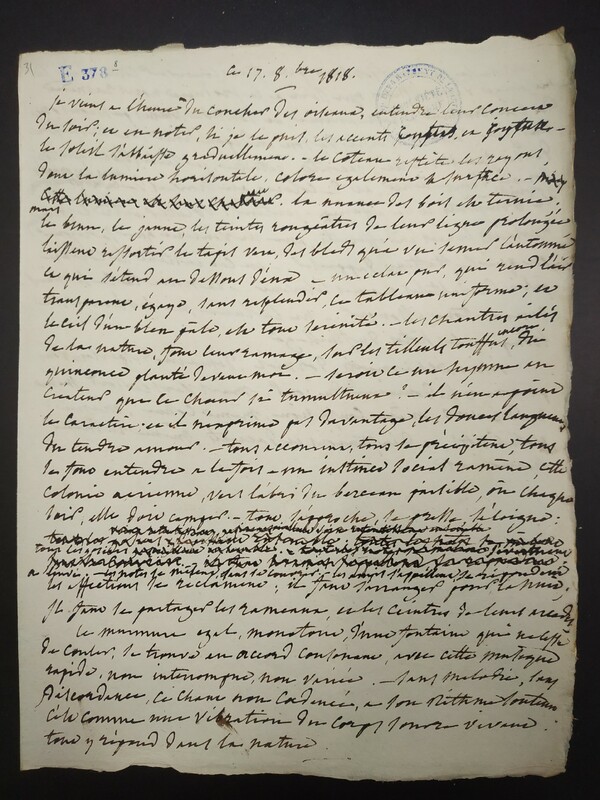 31
E 378 8
ce 17. 8.bre 1818.
je viens a l'heure du coucher des oiseaux, entendre leur concert
du soir, et en noter, si je le puis, les accents
le soleil s'abaisse graduellement. - le coteau reflète les rayons
dont la lumiere horisontale, colore egalement sa surface. -
la nuance des bois est ternie,
mais
le brun, le jaune les teintes rougeâtres de leur ligne prolongée
laissent ressortir le tapis verd, des bleds qu'a vu semer l'automne
et qui s'étend au dessous d'eux - un eclat pur, qui rend l'air
transparent, égaye, sans resplendir, ce tableau uniforme; et
le ciel d'un bleu pâle, est tout serenité. - les chantres ailés
de la nature, font leur ramage, sous les tilleuls touffus encore, du
quinconce planté devant moi. - seroit ce un hymne au
Créateur que ce choeur si tumultueux? - il n'en a point
le caractère; et il n'exprime pas davantage, les douces langueurs
du tendre amour. - tous accourent, tous se précipitent, tous
se font entendre a la fois - un instinct social ramène, cette
colonie aerienne, vers l'abri du berceau paisible, où chaque
soir, elle doit camper - tout s'approche, se presse, s'éloigne:
les affections se réclament; il faut s'arranger pour la nuit.
il faut se partager les rameaux, et les ceintres de leurs arcades
Le murmure egal, monotone, d'une fontaine qui ne cesse
de couler, se trouve en accord consonant, avec cette musique
rapide, non interrompue, non variée. - sans melodie, sans
discordance, ce chant non cadencé, a son rithme soutenu
c'est comme une vibration du corps sonore vivant.
tout y répond dans la nature.